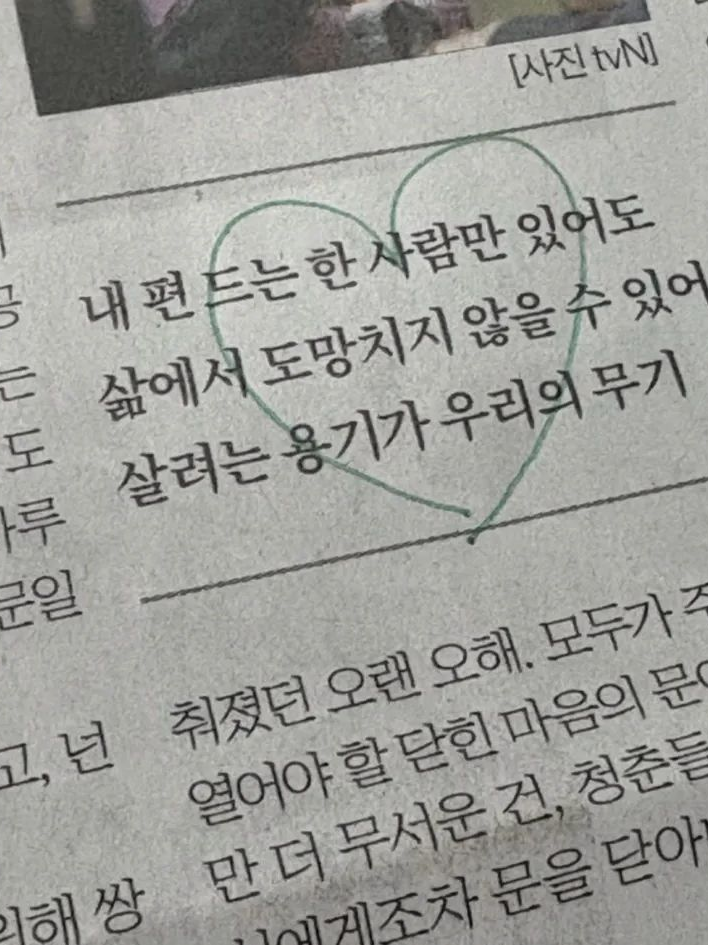 [사진 tvN]
내 편 드는 한 사람만 있어도
삶에서 도망치지 않을 수 있어
살려는 용기가 우리의 무기
공
는
도
루
문일
고, 넌
위해 쌍
춰졌던 오랜 오해. 모두가 주
열어야 할 닫힌 마음의 문
만 더 무서운 건, 청춘들
에게조차 문을 닫아